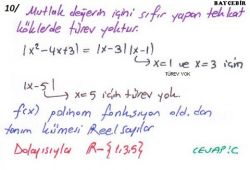 BAYCEBİR
10/ Mutlak değerin içini sıfır yapan tek kat
köklerde türev yoktur.
|x²-4x+3| = |x-3| |x-1|
→ x=1 ve x=3 için
TÜREV YOK
|x-5|
→ x=5 için türev yok.
f(x) polinom fonksiyon old. dan
tanım kümesi Reel sayılar
Dolayısıyla R-{1,3,5} CEVAP:C